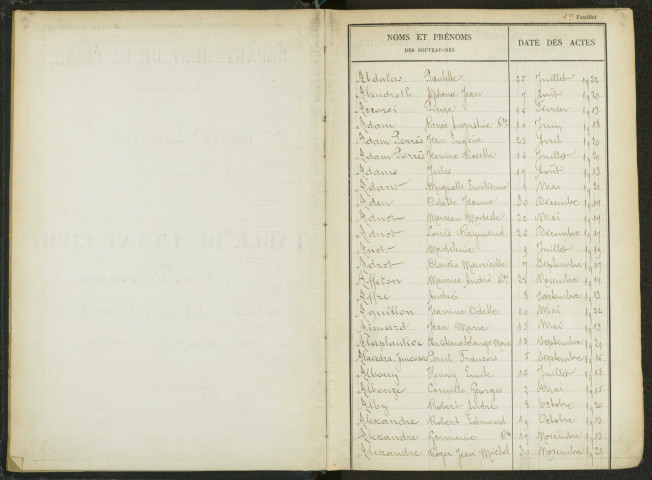 1er Feuillet
NOMS ET PRÉNOMS DES NOUVEAU-NÉS DATE DES ACTES
Abdalas Paulette 25 Juillet 1922
Abendroth Jean 7 Août 1920
Accorsi Pierre 16 Février 1913
Adam Renée Augustine 10 Juin 1918
Adam Porrés Jean Eugène 23 Avril 1920
Adam Porrés Jeannine Rosette 16 Juillet 1921
Adams Jules 19 Août 1913
Adant Huguette Emilienne 1 Mai 1921
Aden Odette Jeanne 30 Décembre 1919
Adnot Marceau Modeste 20 Mai 1919
Adnot Louis Raymond 26 Décembre 1917
Madeleine 9 Juillet 1919
Adrot Blanche Mauricette 7 Septembre 1917
Affeton Maurice André 24 Novembre 1914
Affre André 8 Septembre 1913
Aguillon Jeannine Odette 10 Mai 1922
Aimard Jean Marie 15 Mai 1913
Alaplantive 18 Septembre 1921
Paul François 5 Septembre 1916
Albouy Henry Emile 16 Juillet 1913
Albouze Camille Georges 2 Mai 1915
Alby Robert André 8 Octobre 1920
Alexandre Robert Edmond 19 Octobre 1913
Alexandre Germaine 19 Novembre 1913
Alexandre Roger Jean Michel 30 Novembre 1921